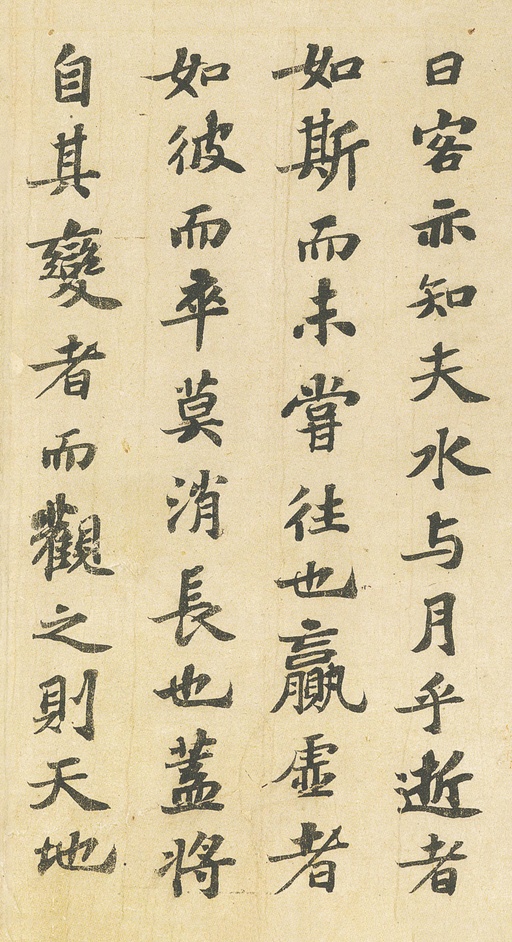 曰客亦知夫水与月乎逝者
如斯而未嘗往也贏虚者
如彼而卒莫消長也蓋將
自其變者而觀之則天地